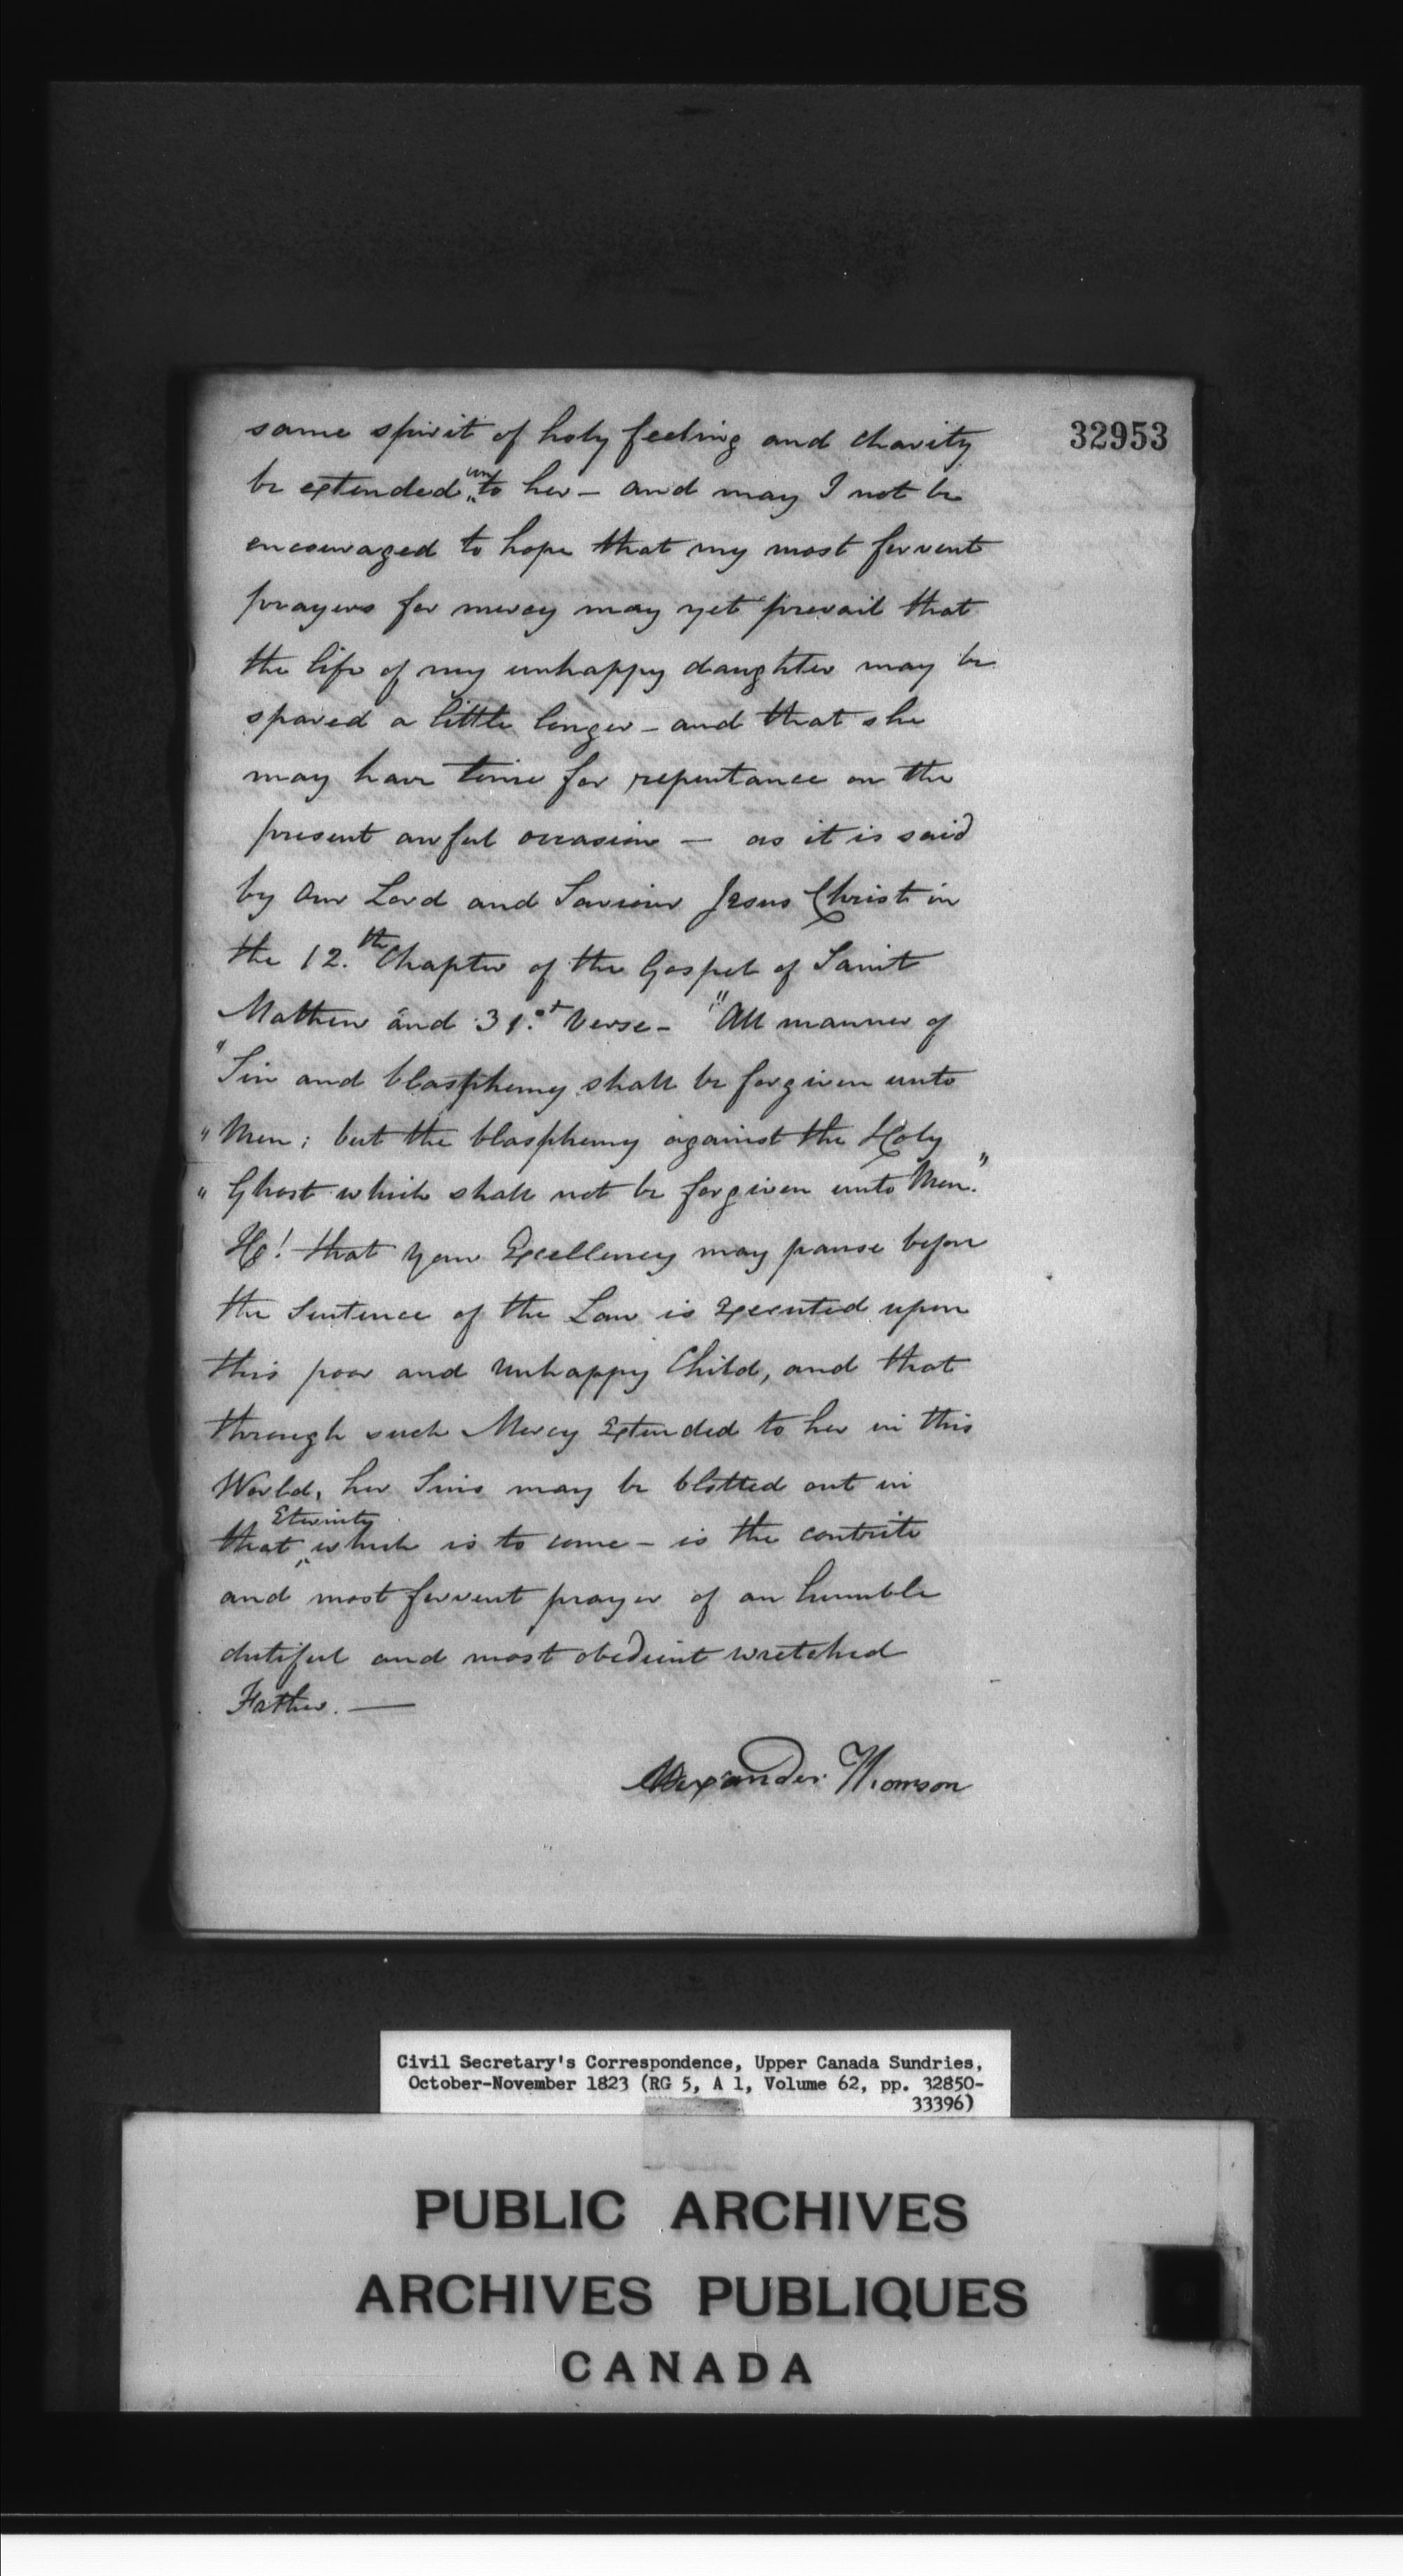 32953
same spirit of holy feeling and charity
be extended unto her – and may I not be
encouraged to hope that my most fervent
prayers for mercy may yet prevail that
the life of my unhappy daughter may be
spared a little longer – and that she
may have time for repentance on the
present awful occasion – as it is said
by Our Lord and Saviour Jesus Christ in
the 12.th Chapter of the Gospel of Saint
Mathew and 31.st Verse – "All manner of
"Sin and blasphemy shall be forgiven unto
"Men; but the blasphemy against the Holy
"Ghost which shall not be forgiven unto Men."
that Your Excellency may pause before
the Sentence of the Law is Executed upon
this poor and unhappy Child, and that
through such Mercy Extended to her in this
World, her Sins may be blotted out in
that Eternity which is to come – is the contrite
and most fervent prayer of an humble
dutiful and most obedient wretched
Father. —
Alexander Thomson
Civil Secretary's Correspondence, Upper Canada Sundries,
October-November 1823 (RG 5, A 1, Volume 62, pp. 32850-
33396)
PUBLIC ARCHIVES
ARCHIVES PUBLIQUES
CANADA